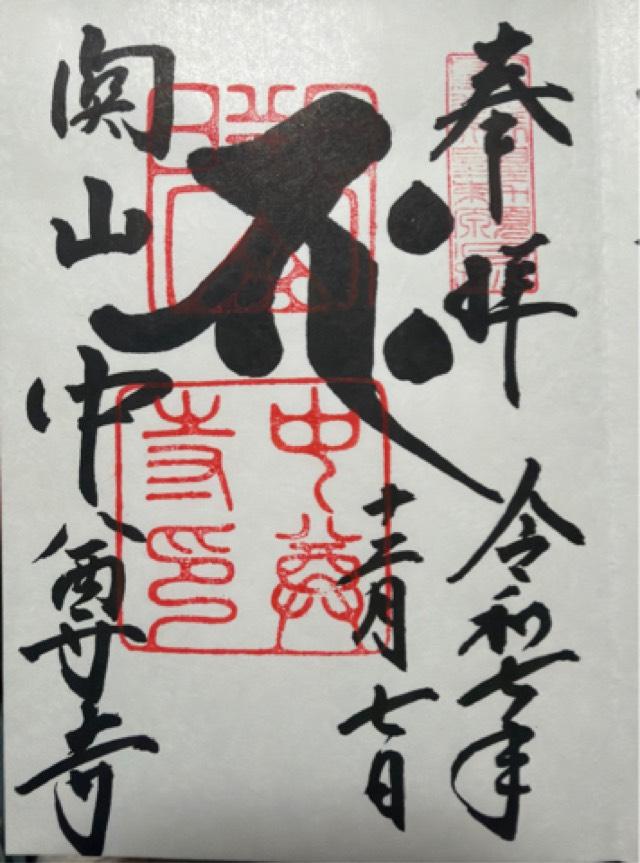 奉拝
令和七年
十二月七日
関山中尊寺
中尊
寺印